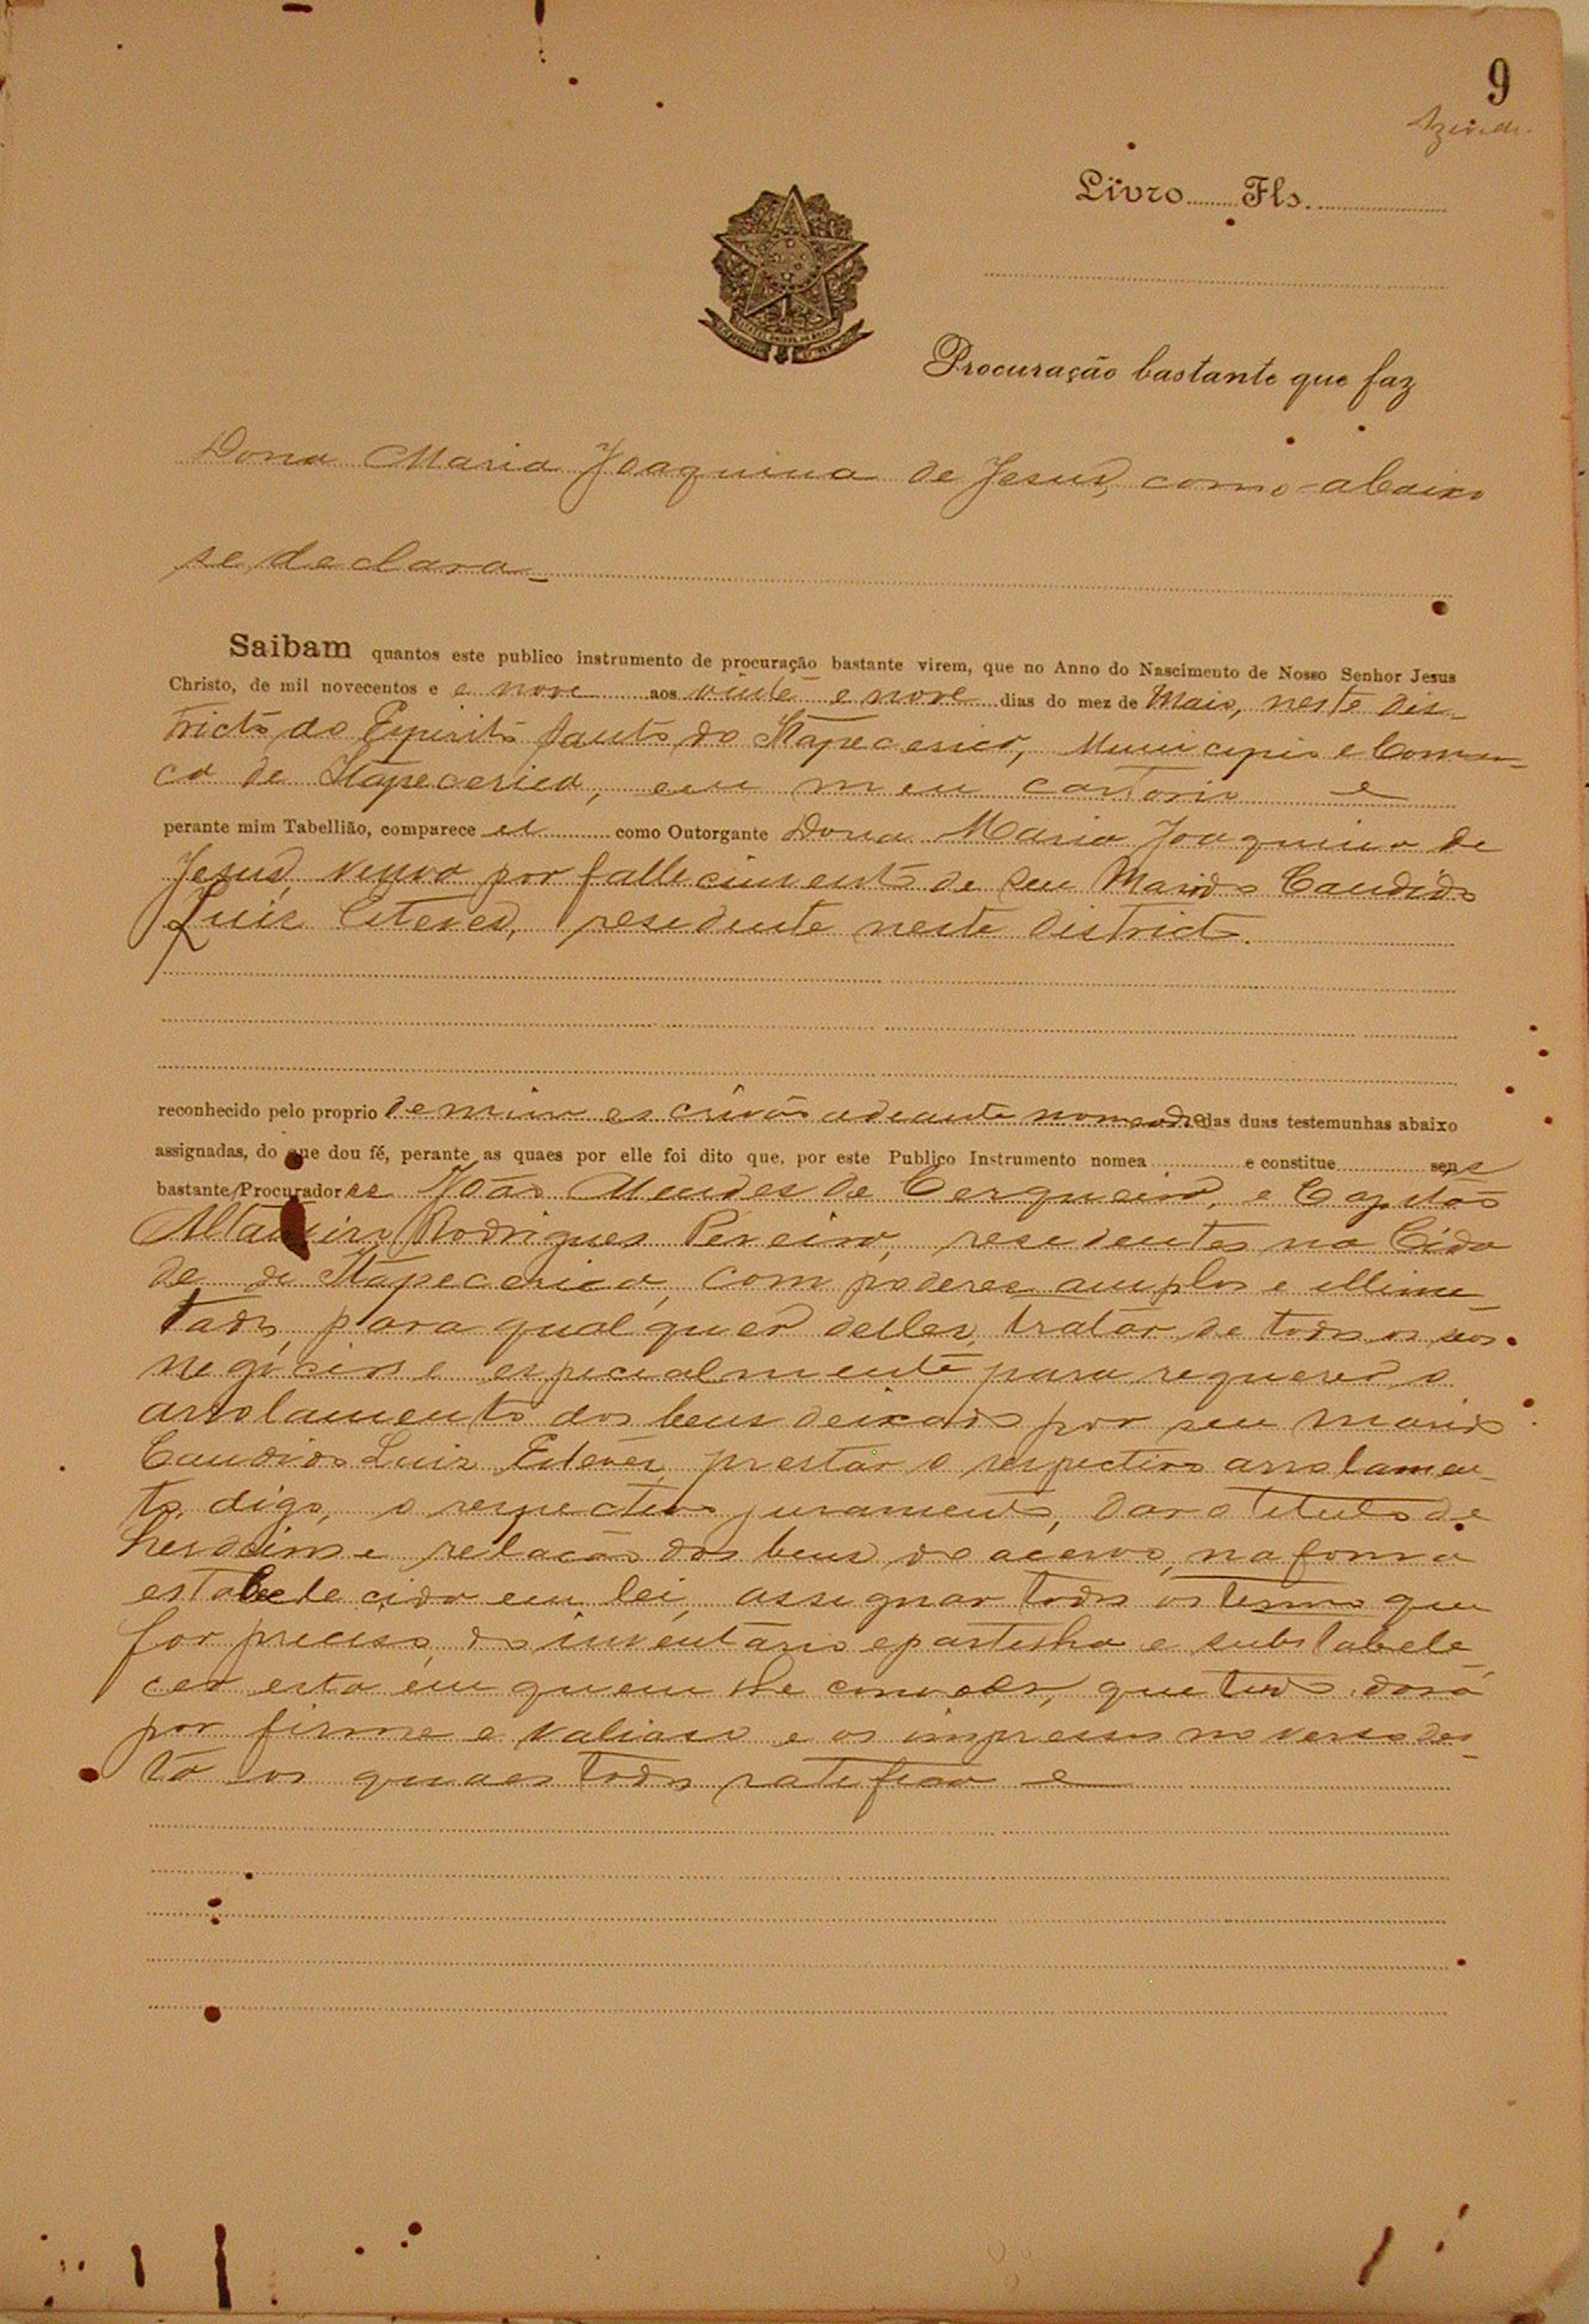 9
Livro........Fls.
Procuração bastante que faz
Dona Maria Joaquina de Jesus, como abaixo
se declara_
Saibam quantos este publico instrumento de procuração bastante virem, que no Anno do Nascimento de Nosso Senhor Jesus
Christo, de mil novecentos e e nove aos vinte e nove dias do mez de Maio, neste dis-
tricto do Espirito Santo do Itapecerica, Municipio e Comar-
ca de Itapecerica, em meu cartorio e
perante mim Tabellião, comparece eu como Outorgante Dona Maria Joaquina de
Jesus, viuva por fallecimento de seu Marido Candido
Luiz Esteves, residente neste districto.
reconhecido pelo proprio de mim escrivão adeante nomeado e das duas testemunhas abaixo
assignadas, do que dou fé, perante as quaes por elle foi dito que, por este Publico Instrumento nomea e constitue seus
bastante Procuradores João Mendes de Cerqueira, e Capitão
Altamiro Rodrigues Pereira, residentes na Cida
de de Itapecerica, com poderes amplos e illimi_
tados, para qualquer delles, tratar de todos os seos
negocios e especialmente para requerer o
arrolamento dos bens deixados por seu marido
Candido Luiz Esteves, prestar o respectivo arrolamen_
to, digo, o respectivo juramento, dar o titulo de
herdeiros e relacão dos bens do acervo, na forma
estabelecida em lei, assignar todos os termos que
for preciso, do inventario e partilha e substabele_
cer esta em quem lhe convier, que tudo dará
por firme e valioso e os impressos no verso des_
ta os quaes todos ratifica e